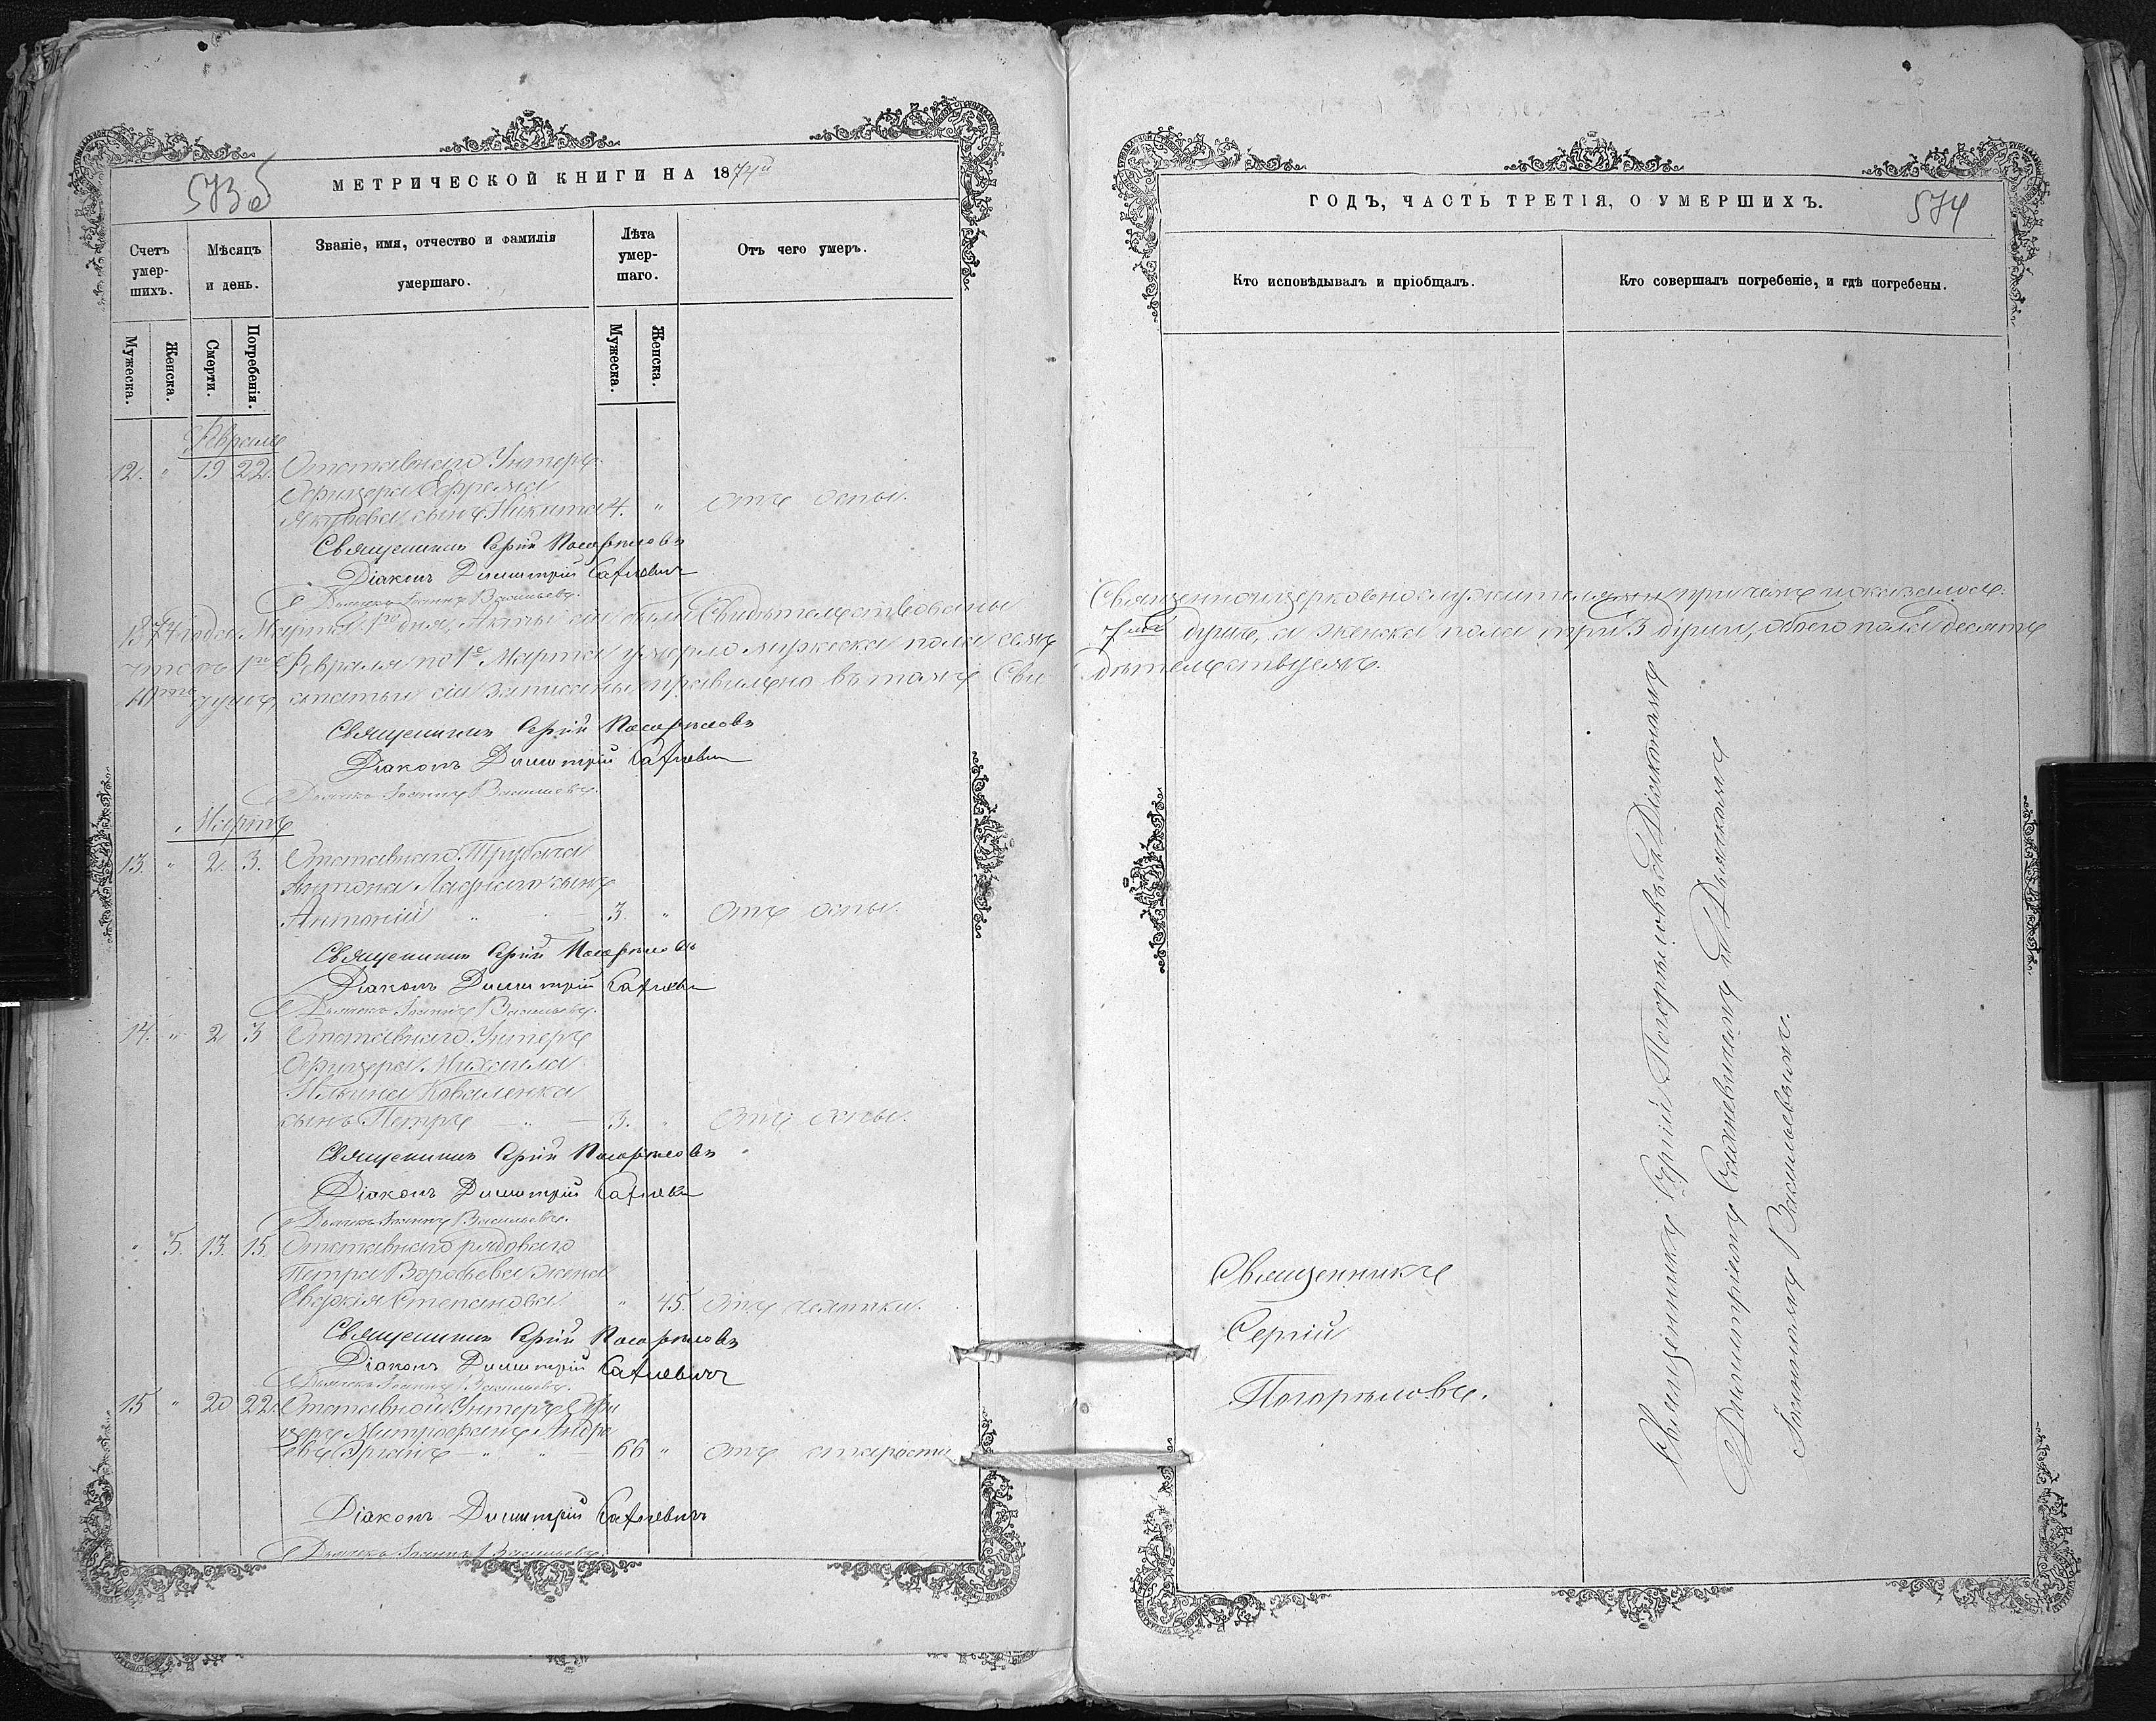 573б
МЕТРИЧЕСКОЙ КНИГИ НА 1874й
Счетъ умер-шихъ.
Мѣсяцъ и день.
Званіе, имя, отчество и фамилія умершаго.
Лѣта умер-шаго.
Отъ чего умеръ.
Мужеска.
Женска.
Смерти.
Погребенія.
Мужеска.
Женска.
Февраль
12. " 19 22. Отставнаго Унтеръ
Офицера Ефрема
Якубова сынъ Никита 4. " отъ оспы.
Священникъ Сергій Погорѣловъ
Діаконъ Димитрій Сахневич
Дьячекъ Іоаннъ Васильевъ.
1874 года Марта 1го дня, Акты сіи были Свидѣтельствованы
что съ 1го Февраля по 1е Марта умерло мужеска пола семь
10ть душъ, статьи сіи записаны правильно въ томъ Сви
Священникъ Сергій Погорѣловъ
Діаконъ Димитрій Сахневич
Дьячекъ Іоаннъ Васильевъ.
Мартъ
13. " 2. 3. Отставнаго Трубача
Антона сынъ
Антоній " — 3. " Отъ оспы.
Священникъ Сергій Погорѣловъ
Діаконъ Димитрій Сахневич
Дьячекъ Іоаннъ Васильевъ.
14. " 2 3 Отставнаго Унтеръ
Офицера Михаила
Ильина Коваленка
сынъ Петръ — " — 3. " Отъ оспы.
Священникъ Сергій Погорѣловъ
Діаконъ Димитрій Сахневич
Дьячекъ Іоаннъ Васильевъ.
" 5. 13. 15. Отставнаго рядоваго
Петра Воробьева жена
Евдокія Степанова " 45. отъ
Священникъ Сергій Погорѣловъ
Діаконъ Димитрій Сахневичъ
Дьячекъ Іоаннъ Васильевъ.
15 " 20 22. Отставной Унтеръ Офи
церъ Митрофанъ Андре
евъ — " — 66 " отъ старости
Діаконъ Димитрій Сахневичъ
Дьячекъ Іоаннъ Васильевъ.
ГОДЪ, ЧАСТЬ ТРЕТІЯ, О УМЕРШИХЪ.
574
Кто исповѣдывалъ и пріобщалъ.
Кто совершалъ погребеніе, и гдѣ погребены.
Священноицерковнослужителями при чемъ и оказалось
7мь душъ, а женска пола три 3 души, обоего пола десять
дѣтельствуемъ.
Священникъ
Сергій
Погорѣловъ.
Священникъ Сергій Погорѣловъ съ Діакономъ
Димитріемъ Сахневичемъ и Дьячкомъ
Іоанномъ Васильевымъ.